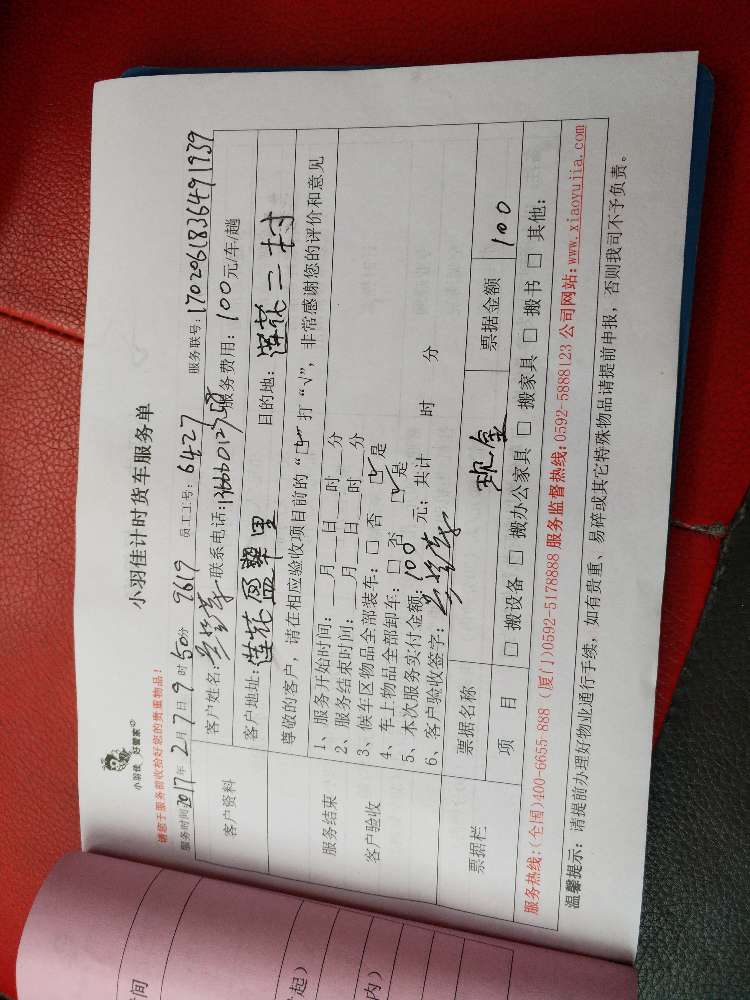 小羽佳 好管家
小羽佳计时货车服务单
请您于服务前收拾好您的贵重物品！
服务时间2017年2月7日9时50分 9619 员工工号：6427 服务联号：1702061836491939
客户资料
客户姓名： 联系电话： 服务费用：100元/车/趟
客户地址：莲花 里 目的地：莲花二村
尊敬的客户，请在相应验收项目前的“□”打“√”，非常感谢您的评价和意见
服务结束
客户验收
1、服务开始时间： 月 日 时 分
2、服务结束时间： 月 日 时 分
3、候车区物品全部装车：□ 否 □ 是
4、车上物品全部卸车：□ 否 □ 是
5、本次服务实付金额：100 元；共计 时 分
6、客户验收签字：
票据栏
票据名称 现金 票据金额 100
项 目 □ 搬设备 □ 搬办公家具 □ 搬家具 □ 搬书 □ 其他：
服务热线：(全国)400-6655-888 (厦门)0592-5178888 服务监督热线：0592-5888123 公司网站：www.xiaoyujia.com
温馨提示：请提前办理好物业通行手续，如有贵重、易碎或其它特殊物品请提前申报，否则我司不予负责。
间
起）
内）